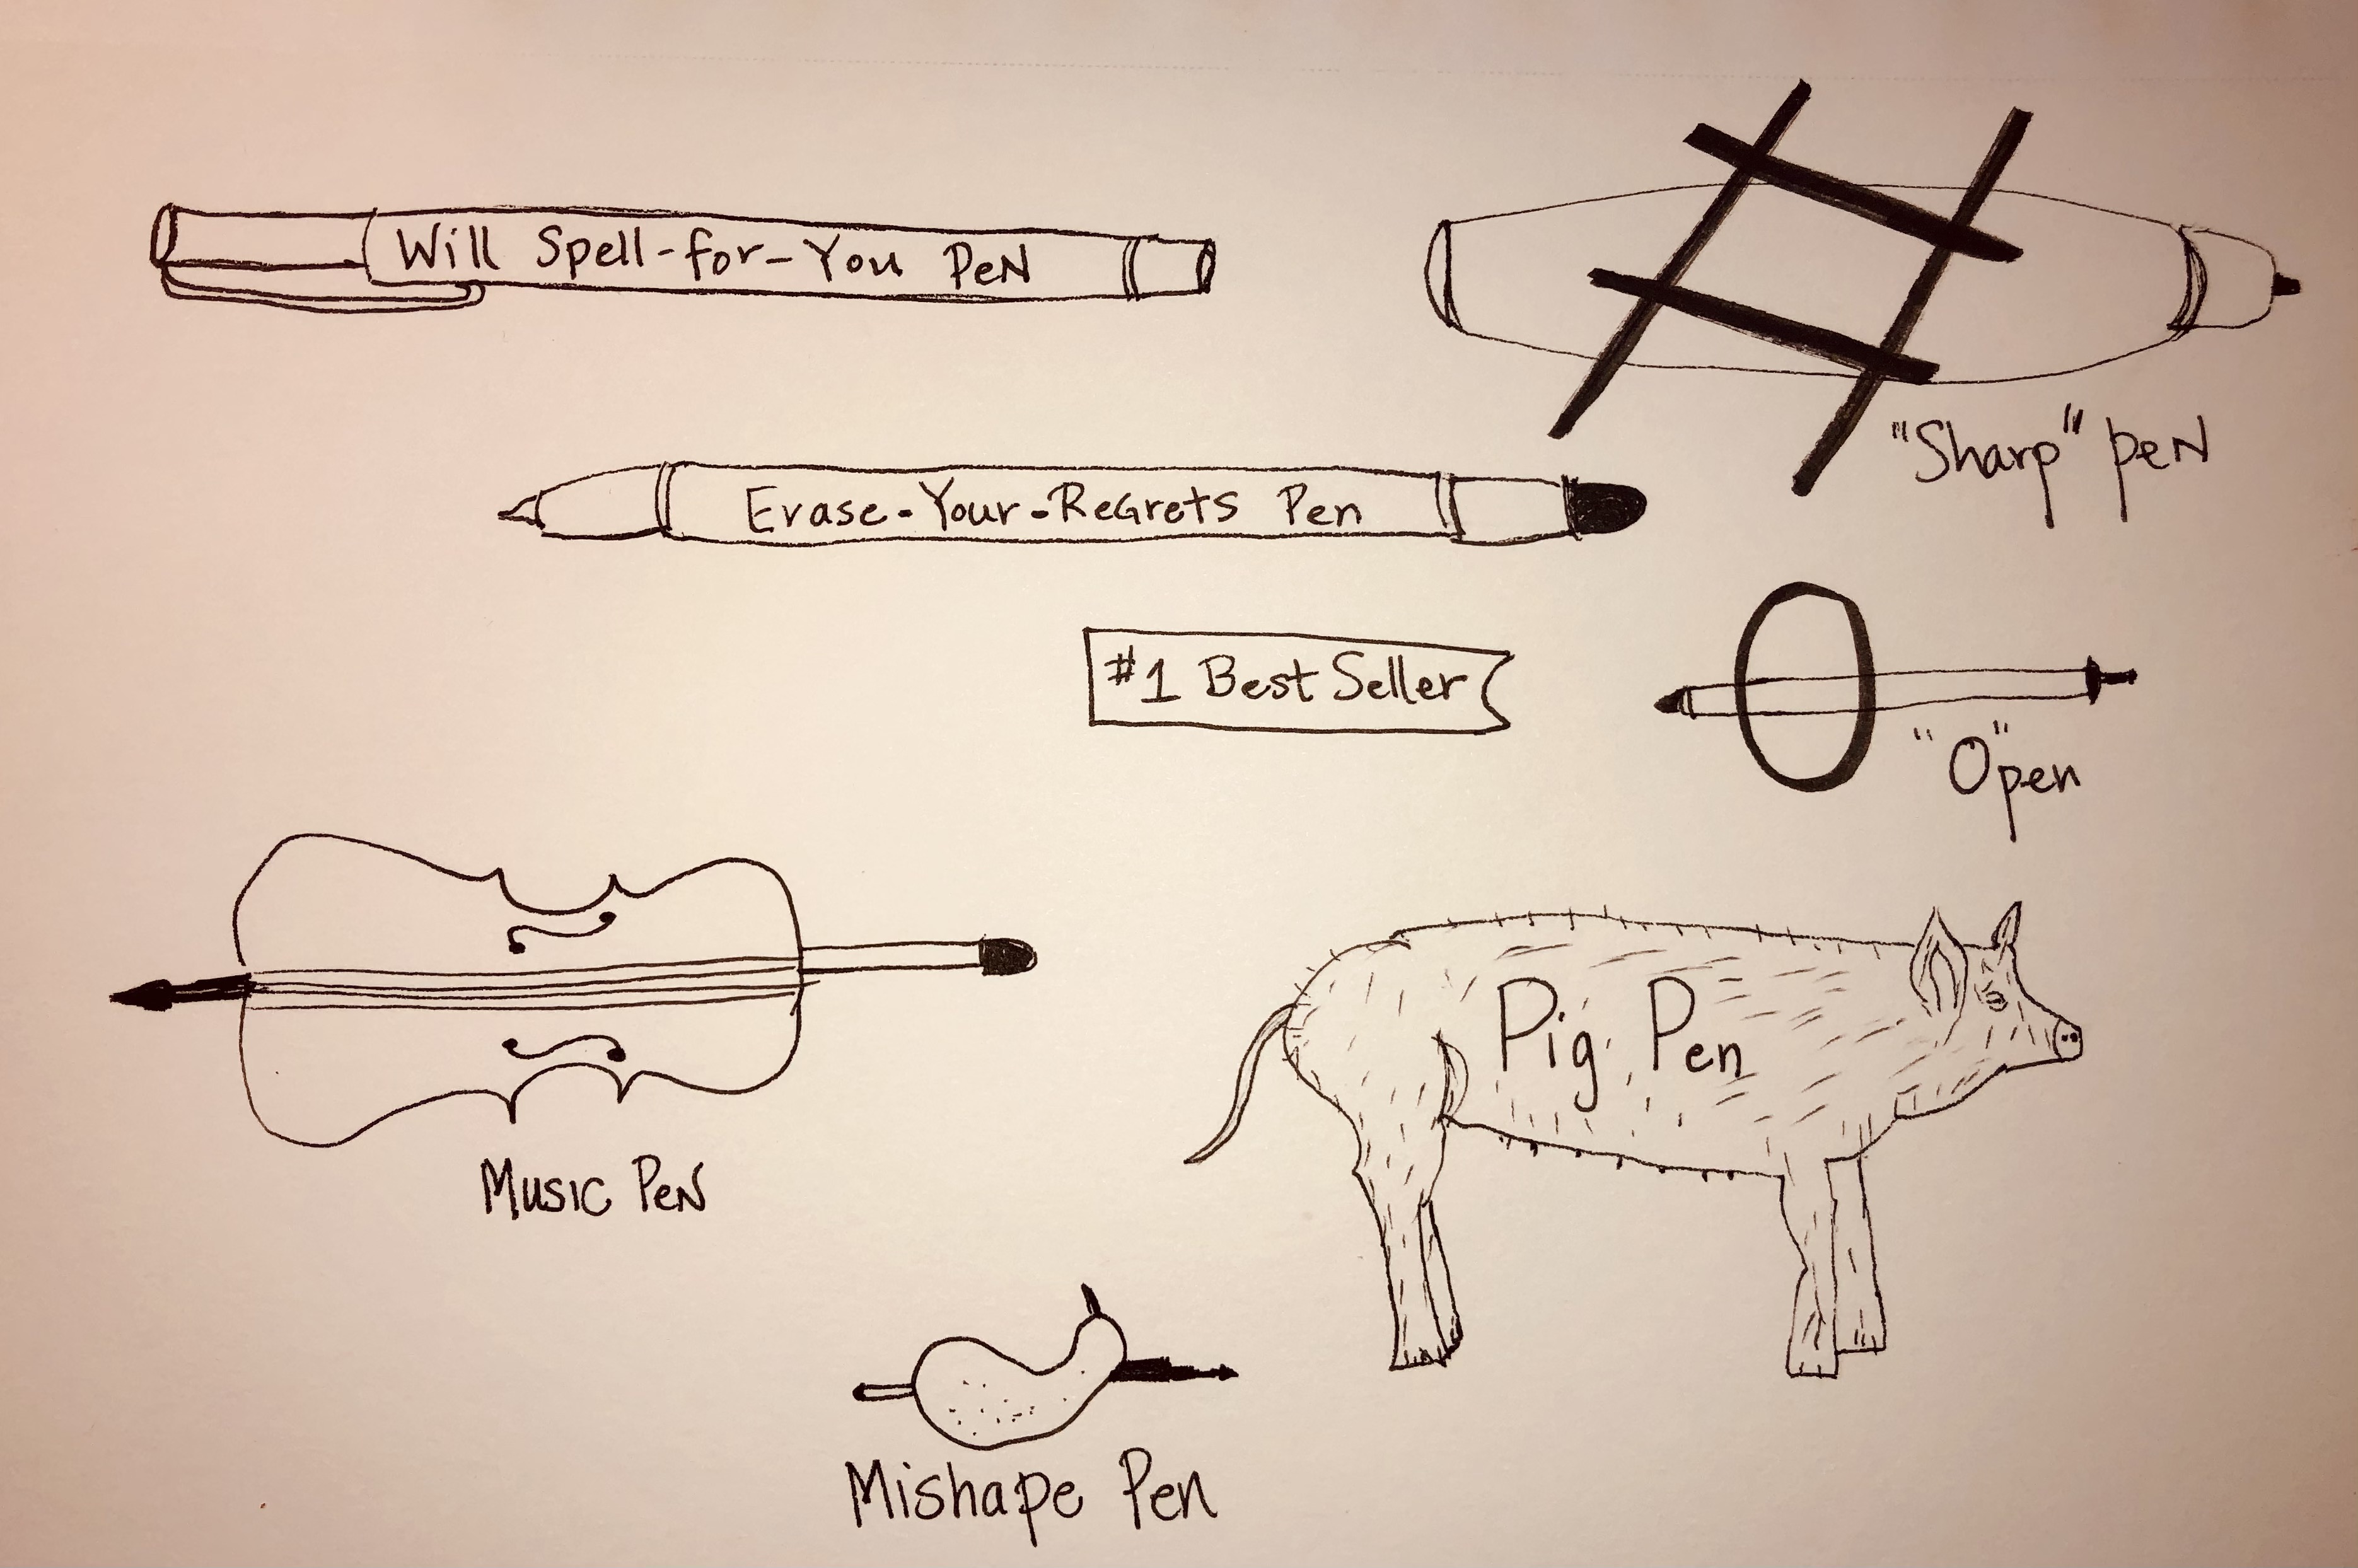 Will Spell-for-You PeN
"Sharp" peN
Erase-Your-ReGrets Pen
#1 Best Seller
"O"pen
Pig Pen
Music PeN
Mishape Pen